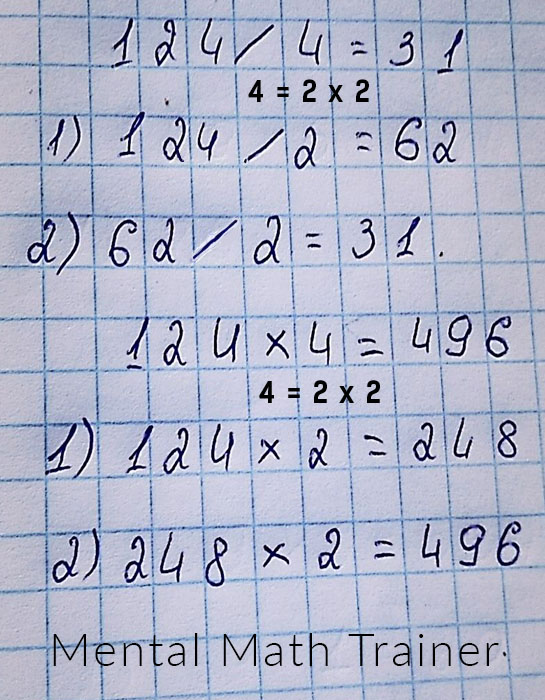 124 / 4 = 31
4 = 2 x 2
1) 124 / 2 = 62
2) 62 / 2 = 31.
124 × 4 = 496
4 = 2 x 2
1) 124 × 2 = 248
2) 248 × 2 = 496
Mental Math Trainer